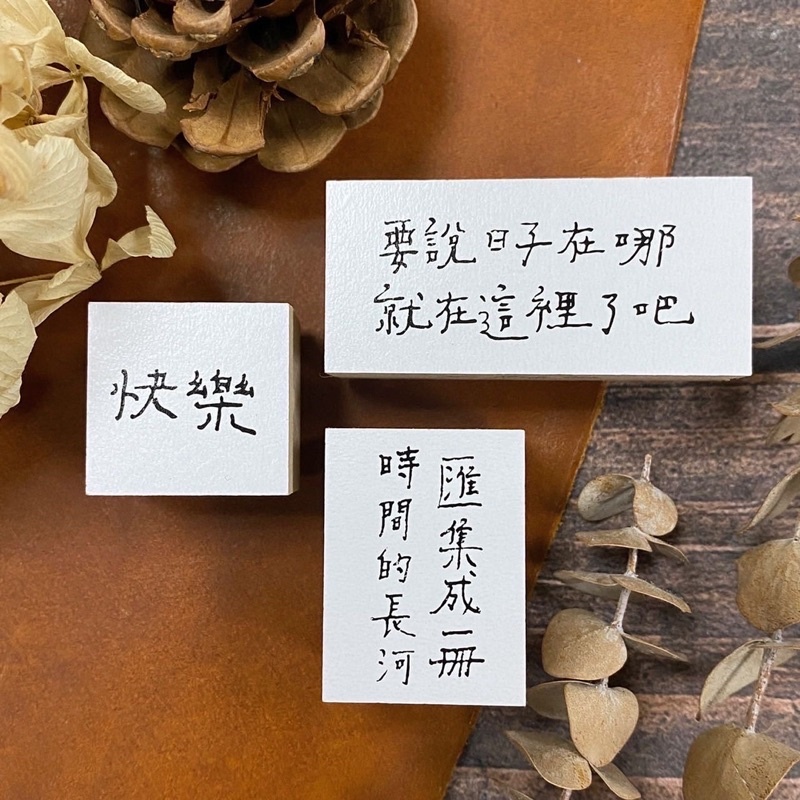 要說日子在哪
就在這裡了吧
快樂
匯集成一冊
時間的長河